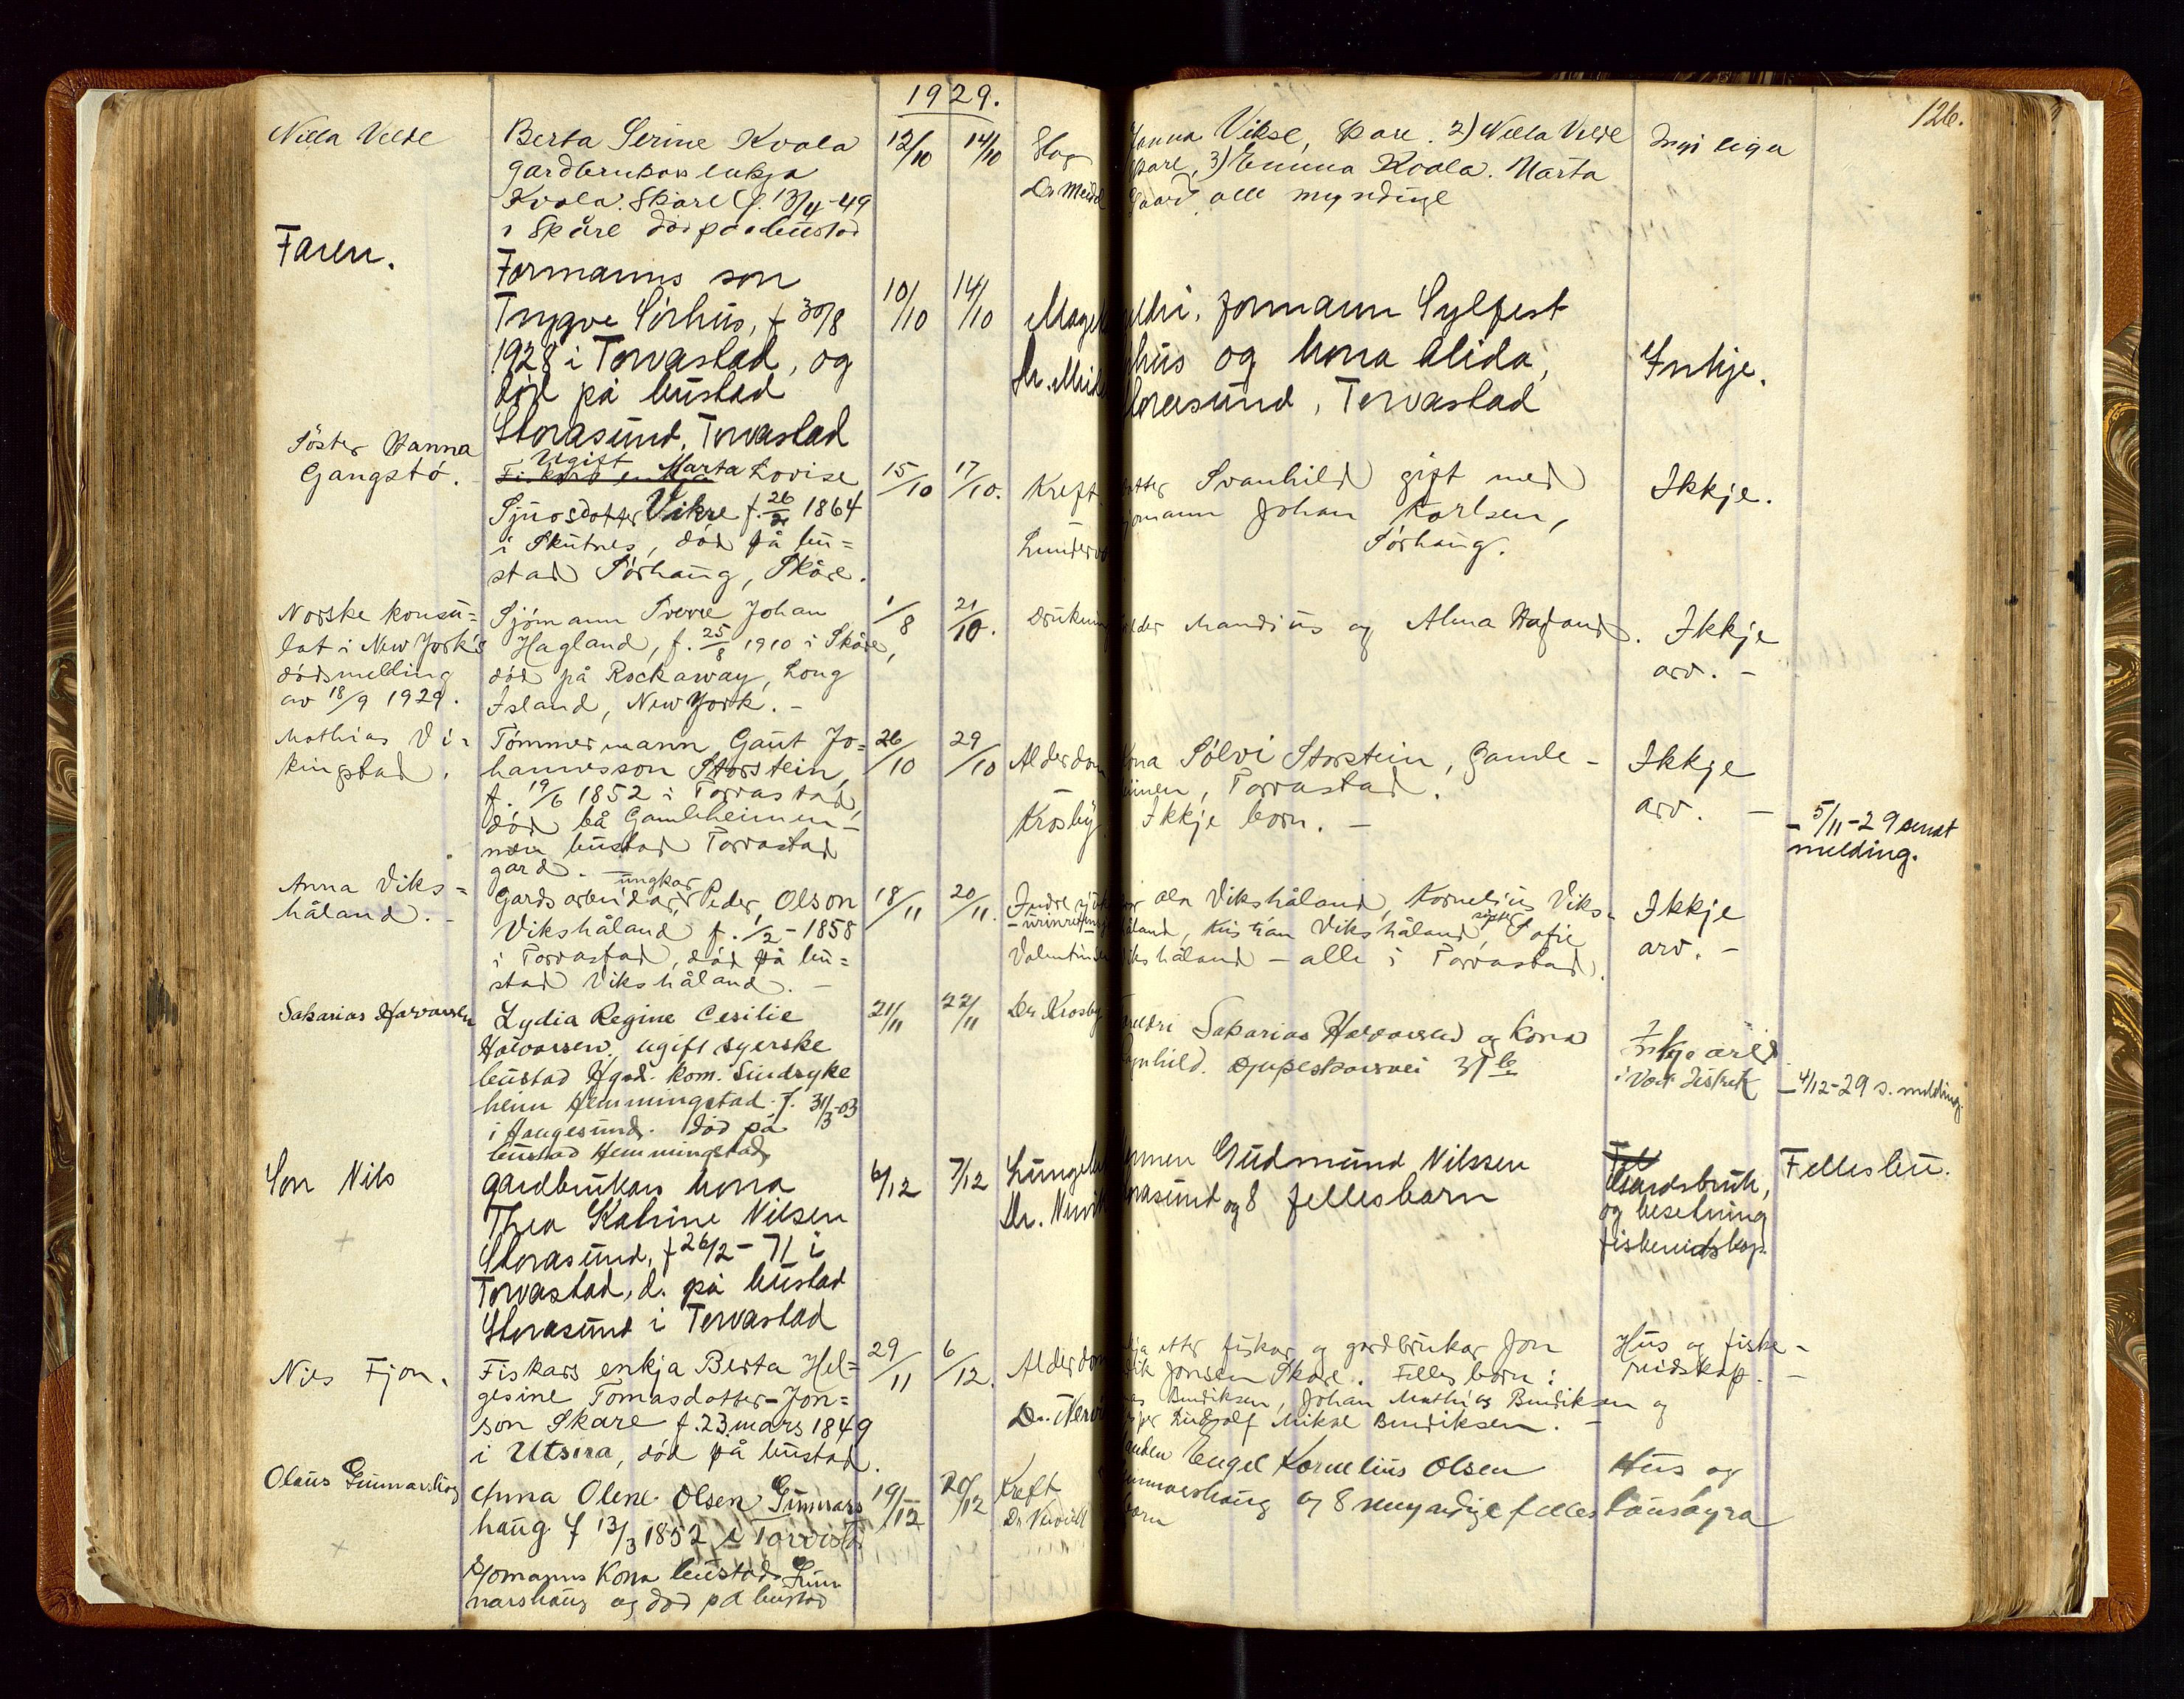 1929.
126.
Nilla Velde
Berta Serine Kvala
gardbrukars enkja
Kvala. Skåre f. 13/4-49
i Skåre død på bustad
12/10
14/10
Slag
Dr Meid
Janna Vikse, Skare. 2) Nilla Velde
Skare, 3) Emma Kvala. Marta
alle myndige
Ingi eiga
Faren.
Formanns son
Trygve Sørhus, f 30/8
1928 i Torvastad, og
død på bustad
Storasund, Torvastad
10/10
14/10
Mage
Dr. Meid
eldri, formann Sylfest
hus og kona Alida,
Storasund, Torvastad
Inkje.
Søster Hanna
Gangstø.
Ugift
Fiskars enkja Marta Lovise
Sjuosdotter Vikre f. 26/2 1864
i Skutnes, død på bu=
stad Sørhaug, Skåre.
15/10
17/10.
Kreft
Lunderv
dotter Svanhild gift med
sjømann Johan Karlsen,
Sørhaug.
Ikkje.
Norske konsu=
lat i New York's
dødsmelding
av 18/9 1929.
Sjømann Sverre Johan
Hagland, f. 25/8 1910 i Skåre,
død på Rockaway, Long
Island, New York. -
1/8
21/10.
Drukn
elder Mandius og Alma Hagland.
Ikkje
arv. -
Mathias Vi=
kingstad.
Tømmermann Gaut Jo=
hannesson Storstein,
f. 19/6 1852 i Torvastad,
død på Gamleheimen -
bustad Torvastad
gard. -
26/10
29/10
Alderdom
Krosby.
Kona Sølvi Storstein, Gamle-
heimen, Torvastad.
Ikkje born. -
Ikkje
arv. -
- 5/11-29 sendt
melding.
Anna Viks=
håland. -
ungkar
Gardsarbeidar, Peder Olson
Vikshåland f. 1/2 - 1858
i Torvastad, død på bu=
stad Vikshåland. -
18/11
20/11.
Indre sjuk
Valentin
Ola Vikshåland, Kornelius Viks=
håland, Kristian Vikshåland, syster Sofie
Vikshåland - alle i Torvastad.
Ikkje
arv. -
Sakarias Halvorsen
Lydia Regine Cesilie
Halvorsen. ugift syerske
bustad Hgsd. kom. Sindsyke
heim Hemmingstad. f. 31/3-03
i Haugesund. Død på
bustad Hemmingstad
21/11
22/11
Dr Krosby
Foreldri Sakarias Halvorsen og kona
Ragnhild. Djupeskarvei 31 b
Inkje arv
i vort distrikt
- 4/12-29 s. melding.
Son Nils
+
gardbrukars kona
Thea Katrine Nilsen
Storasund, f 26/2 - 71 i
Torvastad, d. på bustad
Storasund i Torvastad
6/12
7/12
Lungebe
Dr. Nervik
mannen Gudmund Nilssen
Storasund og 8 fellesbarn
Gardsbruk,
og besetning
fiskereidskap.
Fellesbu.
Nils Fjon.
Fiskars enkja Berta Hel=
gesine Tomasdotter-Jon=
son Skare f. 23. mars 1849
i Utsira, død på bustad.
29/11
6/12.
Alderdom
Dr. Nervi
enkja etter fiskar og gardbrukar Jon
Jonsen Skare. Felles born:
Bendiksen, Johan Mathias Bendiksen og
Mikal Bendiksen. -
Hus og fiske-
reidskap. -
Olaus Gunnarshaug
+
Anna Olene Olsen Gunnars
haug f 13/3 1852 i Torvastad
Sjomanns kona bustad Gun
narshaug og død på bustad
19/12
20/12
Kreft
Dr Nervik
Engel Kornelius Olsen
Gunnarshaug og 8 myndige felles
barn
Hus og
lausøyra